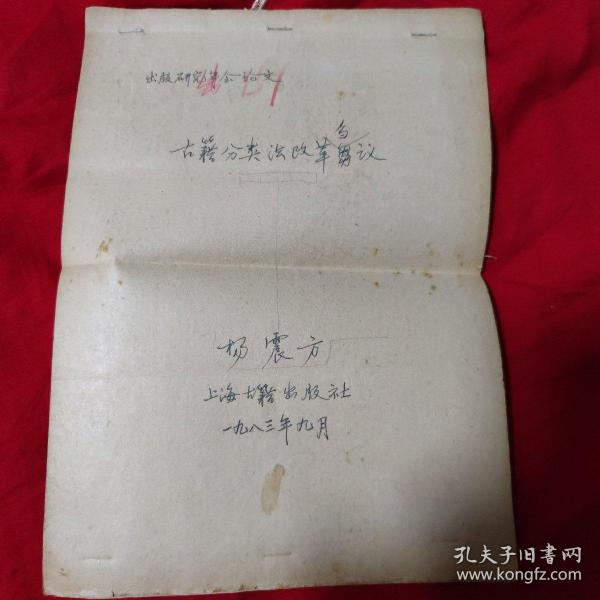 出版研究年会论文
古籍分类法改革刍议
杨震方
上海古籍出版社
一九八三年九月
孔夫子旧书网
www.kongfz.com